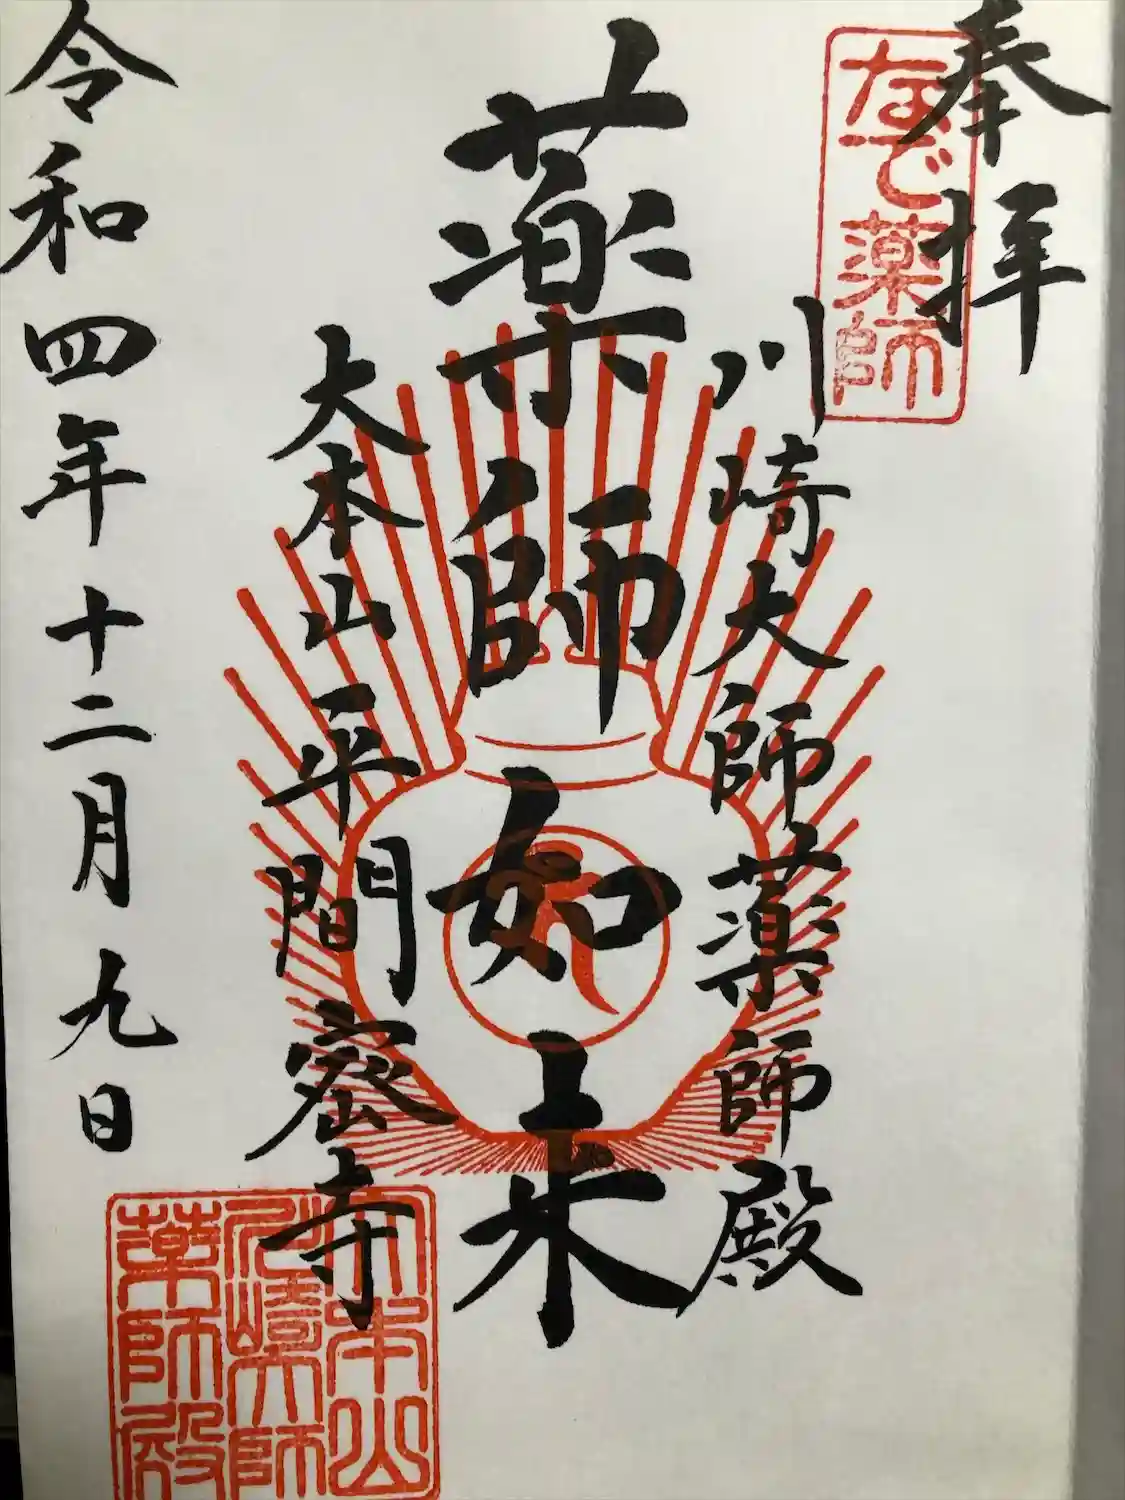 奉拝
なで薬師
川崎大師薬師殿
薬師如来
大本山平間密寺
令和四年十二月九日
大本山
川崎大師
薬師殿